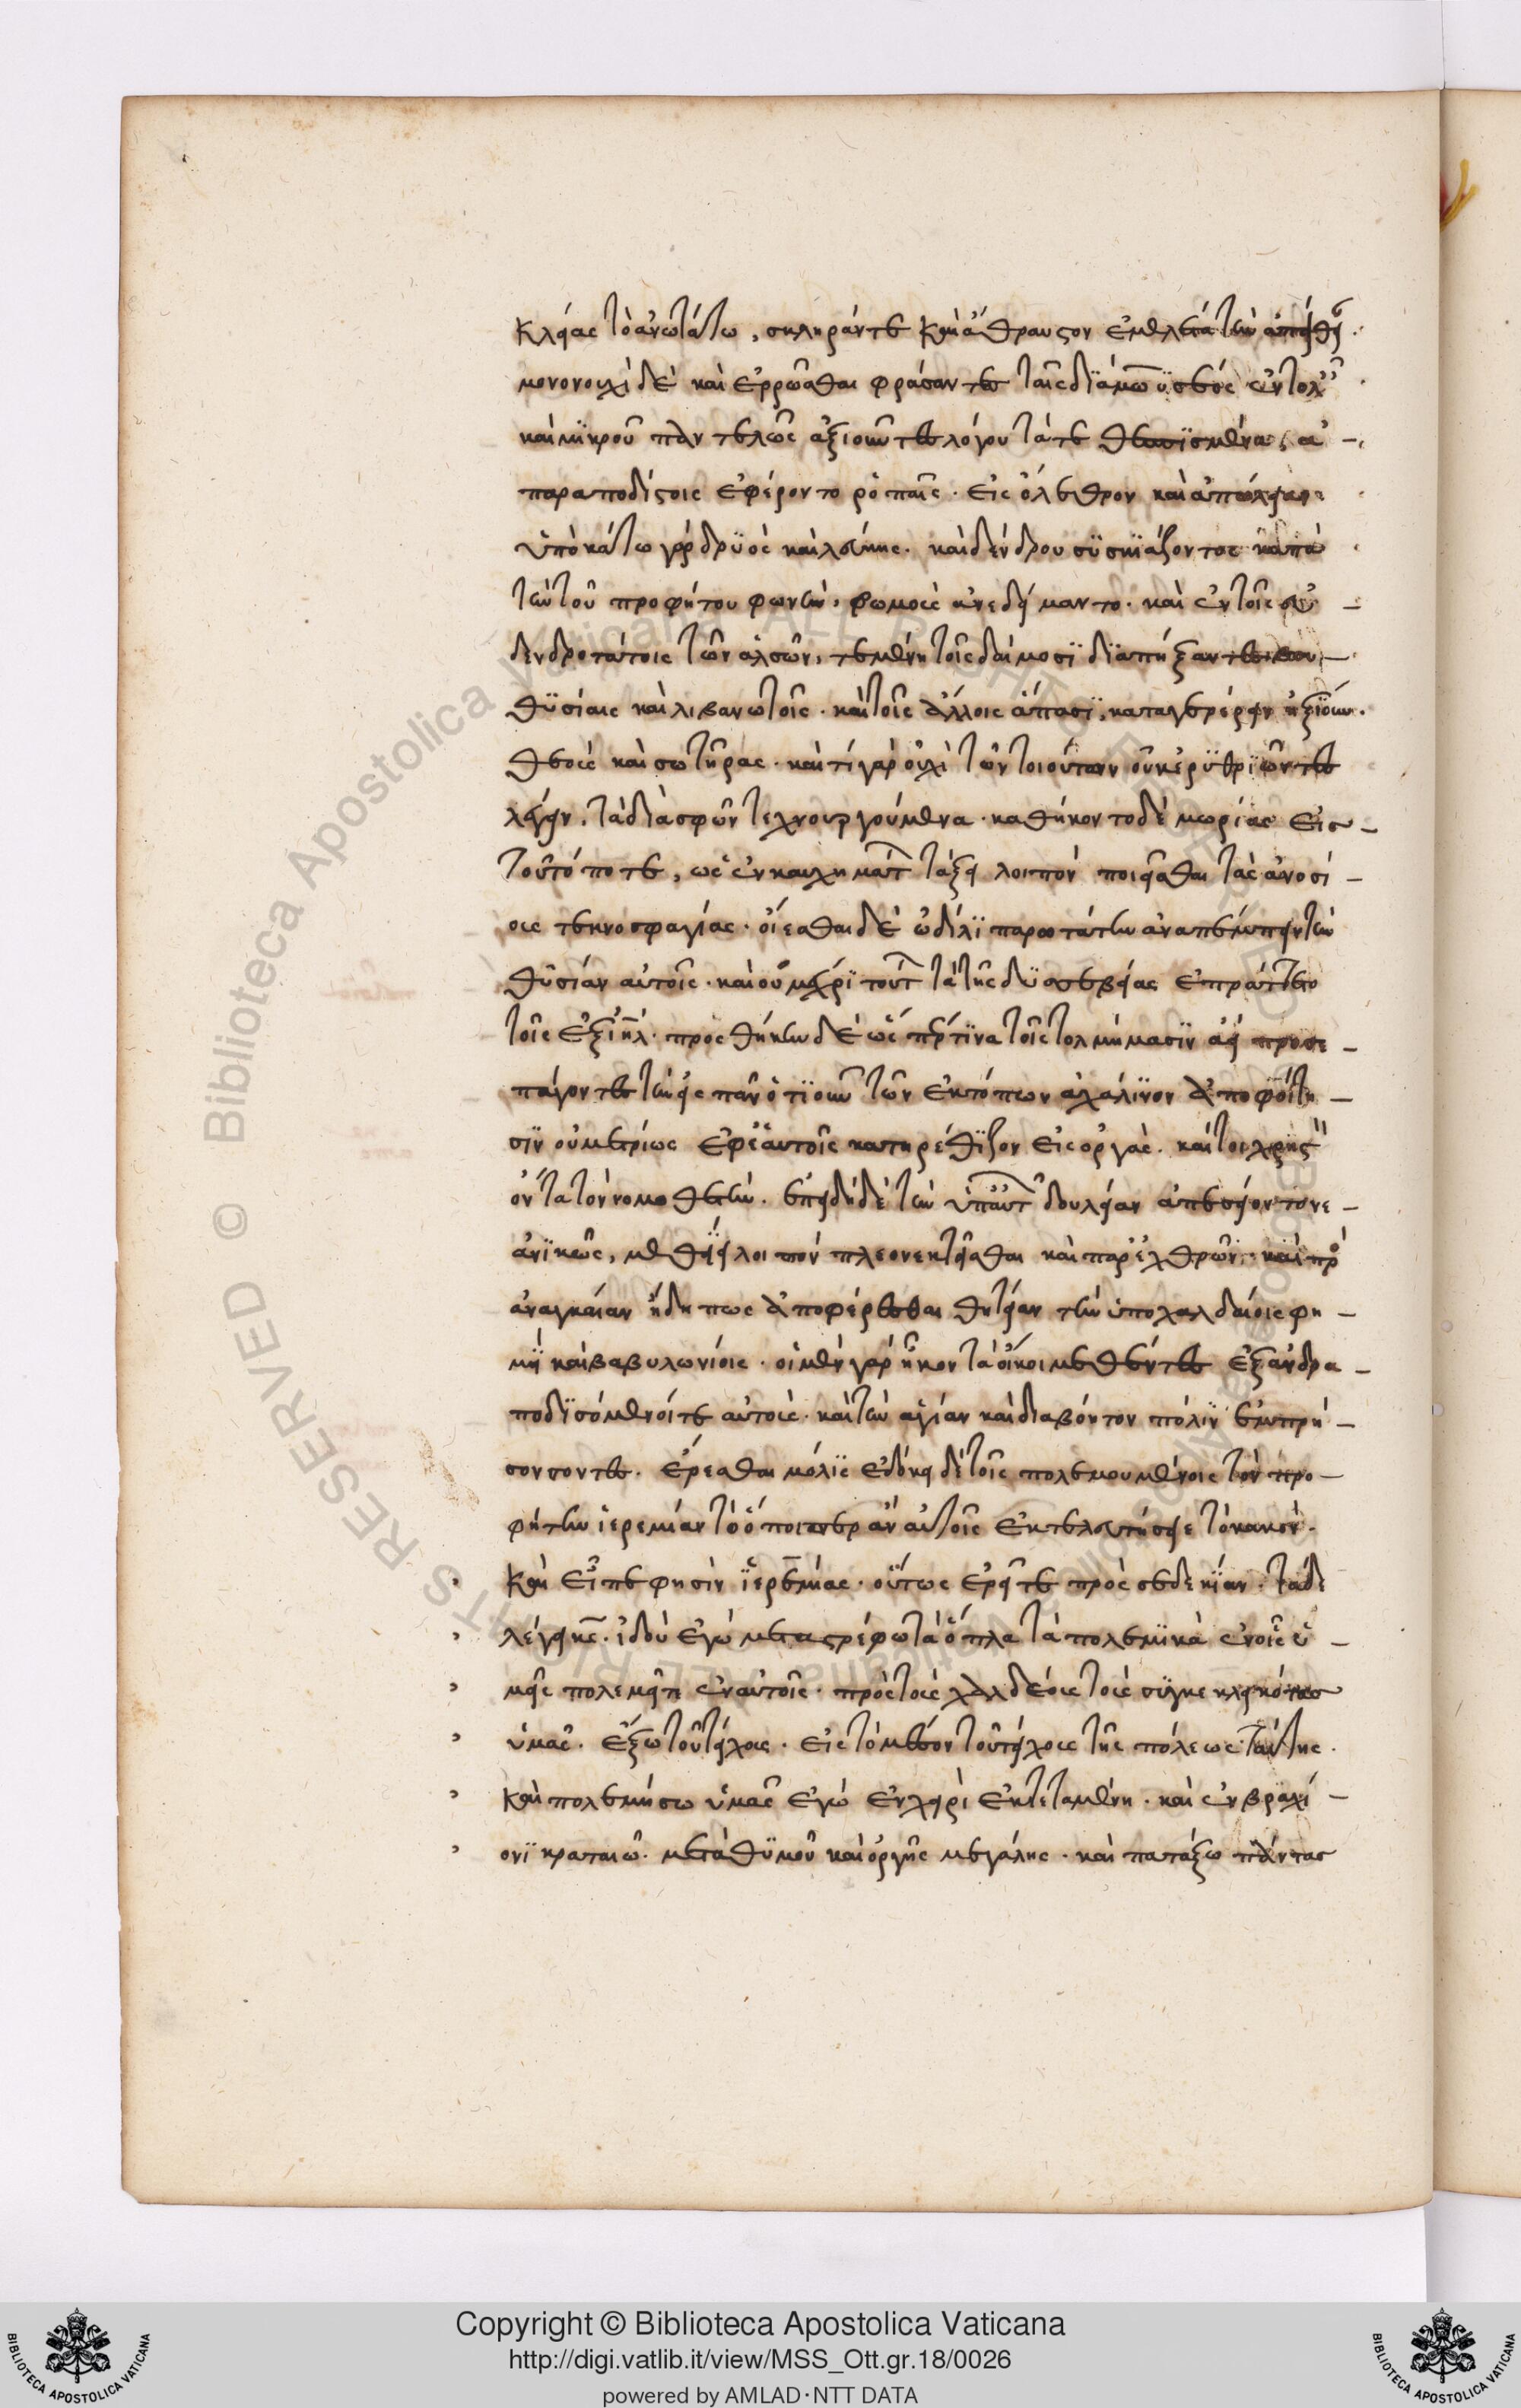 κλείας τὸ ἀνωτάτω, σκληράν τε καὶ ἄθραυστον
μονονουχὶ δὲ καὶ ἐρρῶσθαι φράσαντες ταῖς διὰ μωϋσέως ἐντολαῖς
καὶ μικροῦ παντελῶς ἀξιοῦντες λόγου τά τε
παραποδίστοις ἐφέροντο ῥοπαῖς. εἰς ὄλεθρον καὶ ἀπώλειαν
ὑπὸ κάτω γὰρ δρϋὸς καὶ λεύκης. καὶ δένδρου συσκϊάζοντος κατὰ
τὴν τοῦ προφήτου φωνὴν, βωμοὺς ἀνεδείμαντο. καὶ ἐν τοῖς εὐ
δενδροτάτοις τῶν ἀλσῶν, τεμένη τοῖς δαίμοσϊ διαπήξαντες
θϋσίαις καὶ λιβανωτοῖς. καὶ τοῖς ἄλλοις ἅπασϊ, καταγεραίρειν ἠξίουν.
θεοὺς καὶ σωτῆρας. καὶ τί γὰρ οὐχὶ τῶν τοιούτων οὐκ ἐρϋθριῶντες
λέγειν, τὰ διὰ σφῶν τεχνουργούμενα. καθήκοντο δὲ μωρίας εἰσ
τοῦτό ποτε, ὡς ἐν καυχήματος τάξει λοιπὸν ποιεῖσθαι τὰς ἀνοσί
ους τεκνοσφαγίας. οἴεσθαι δὲ ὡδί τϊ παρωτάτην ἀναπέμπειν τὴν
θυσίαν αὐτοῖς. καὶ οὐ μέχρϊ τούτου τὰ τῆς δϋσσεβείας ἐπράττετο
τοῖς ἐξ ἰηλ. προσθήκην δὲ ὥσπερ τϊνὰ τοῖς τολμήμασϊν ἀεὶ προσε
πάγοντες τὴν εἰς πᾶν ὁτϊοῦν τῶν ἐκτόπων ἀχάλϊνον ἀποφοίτη
σϊν οὐ μετρίως ἐφ' ἑαυτοῖς κατηρέθϊζον εἰς ὀργὰς. καίτοι χρηστὸν
ὄντα τὸν νομοθέτην. ἐπειδὴ δὲ τὴν ὑπ' αὐτῷ δουλείαν ἀπεσείοντο νε
ανϊκῶς, μεθεῖλοι πὸν πλεονεκτεῖσθαι καὶ παρ' ἐχθρῶν. καὶ πρὸς
ἀναγκαίαν ἤδη πως ἀποφέρεσθαι θητείαν τὴν ὑπὸ χαλδαίοις φη
μὶ καὶ βαβυλωνίοις. οἱ μὲν γὰρ ἧκον τὰ οἴκοι μεθέντες ἐξανδρα
ποδϊσόμενοί τε αὐτοὺς. καὶ τὴν ἁγίαν καὶ διαβόητον πόλϊν ἐμπρή
σοντες. ἔρεσθαι μόλϊς ἐδόκει δὲ τοῖς πολεμουμένοις τὸν προ
φήτην ἱερεμίαν τὸ ὅποι περ ἂν αὐτοῖς ἐκτελευτήσειε τὸ κακόν.
καὶ εἶπε φησὶν ἱερεμίας. οὕτως ἐρεῖτε πρὸς σεδεκίαν. τάδε
λέγει κς. ἰδοὺ ἐγὼ μεταστρέφω τὰ ὅπλα τὰ πολεμϊκὰ ἐν οἷς ὑ
μεῖς πολεμεῖτε ἐν αὐτοῖς. πρὸς τοὺς χαλδέους τοὺς συγκεκλεικότας
ὑμᾶς. ἔξω τοῦ τείχους. εἰς τὸ μέσον τοῦ τείχους τῆς πόλεως ταύτης.
καὶ πολεμήσω ὑμᾶς ἐγὼ ἐν χειρὶ ἐκτεταμένη. καὶ ἐν βραχί
ονϊ κραταιῶ. μετὰ θϋμοῦ καὶ ὀργῆς μεγάλης. καὶ πατάξω πάντας
Copyright © Biblioteca Apostolica Vaticana
http://digi.vatlib.it/view/MSS_Ott.gr.18/0026
powered by AMLAD·NTT DATA